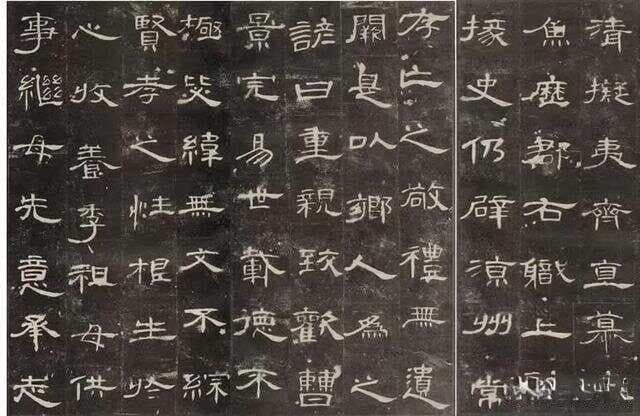 清擬夷齊直慕
魚歷郡右職上
掾史仍辟涼州常
存亡之敬禮無遺
闕是以鄉人為之
諺曰重親致歡曹
景完易世載德不
極毖緯無文不綜
賢孝之性根生於
心收養季祖母供
事繼母先意承志